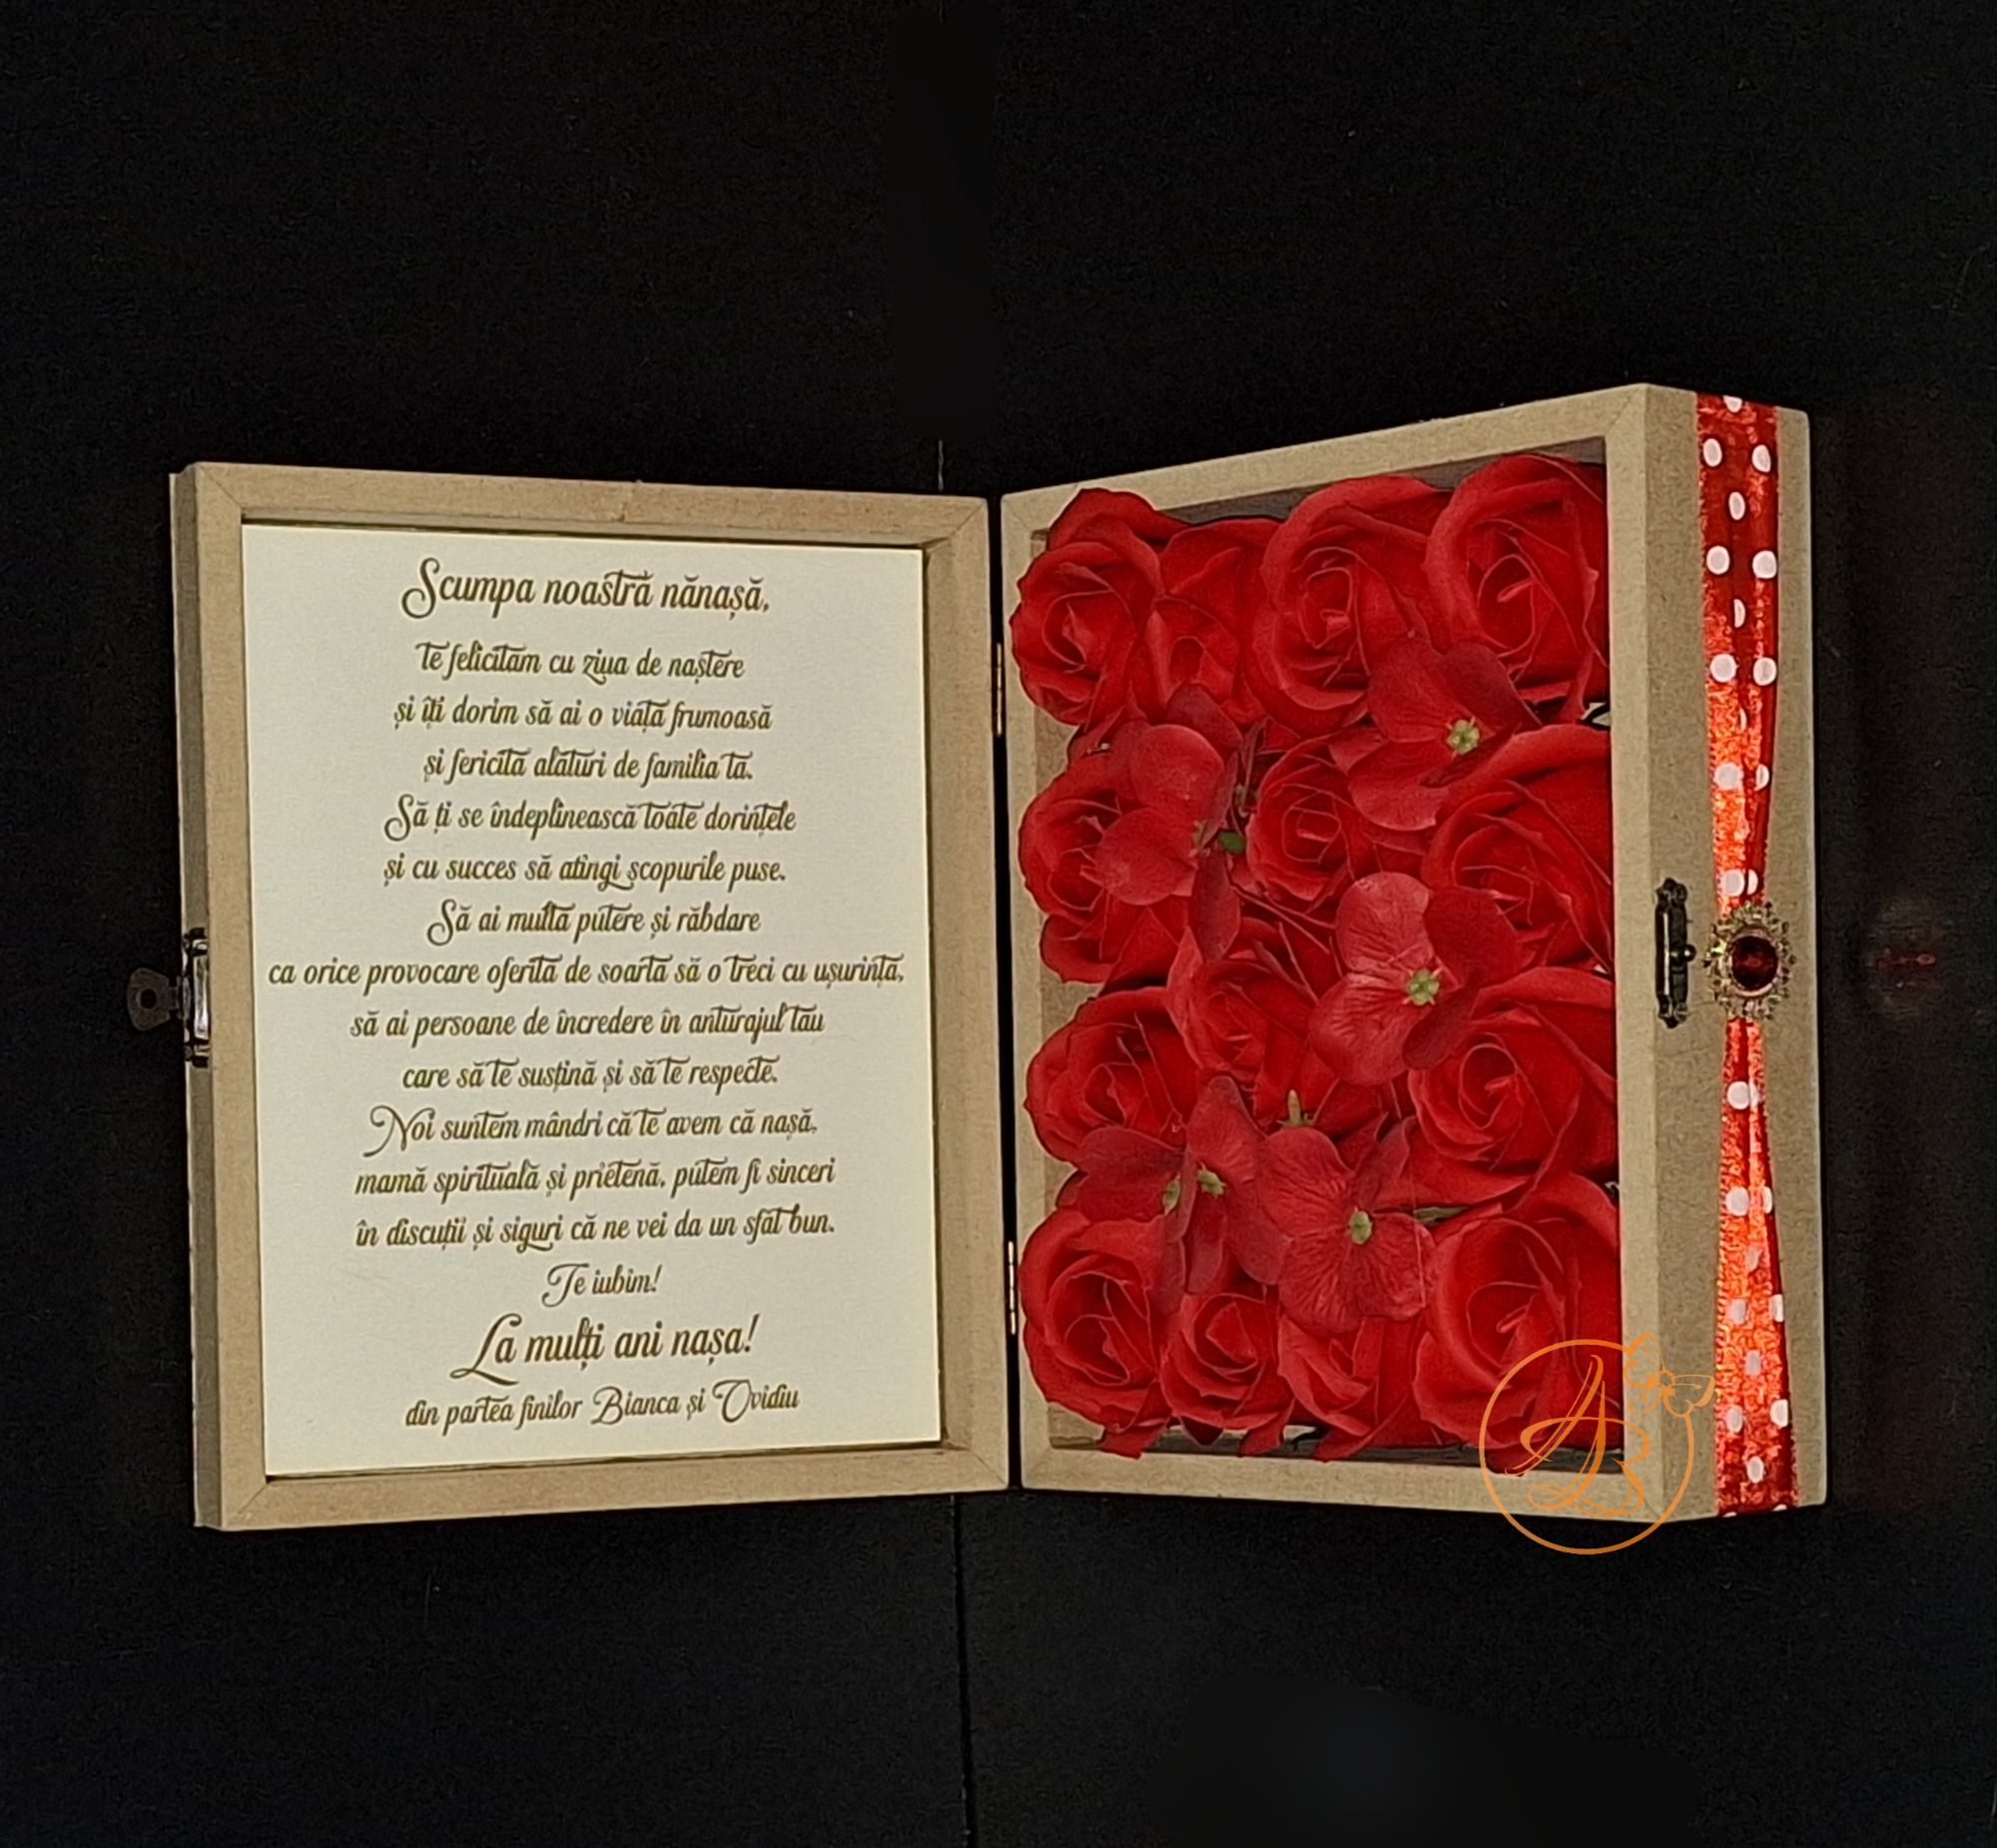 Scumpa noastră nănașă,
te felicităm cu ziua de naștere
și îți dorim să ai o viață frumoasă
și fericită alături de familia ta.
Să ți se îndeplinească toate dorințele
și cu succes să atingi scopurile puse.
Să ai multă putere și răbdare
ca orice provocare oferită de soartă să o treci cu ușurință,
să ai persoane de încredere în anturajul tău
care să te susțină și să te respecte.
Noi suntem mândri că te avem că nașă,
mamă spirituală și prietenă, putem fi sinceri
în discuții și siguri că ne vei da un sfat bun.
Te iubim!
La mulți ani nașa!
din partea finilor Bianca și Ovidiu
AB